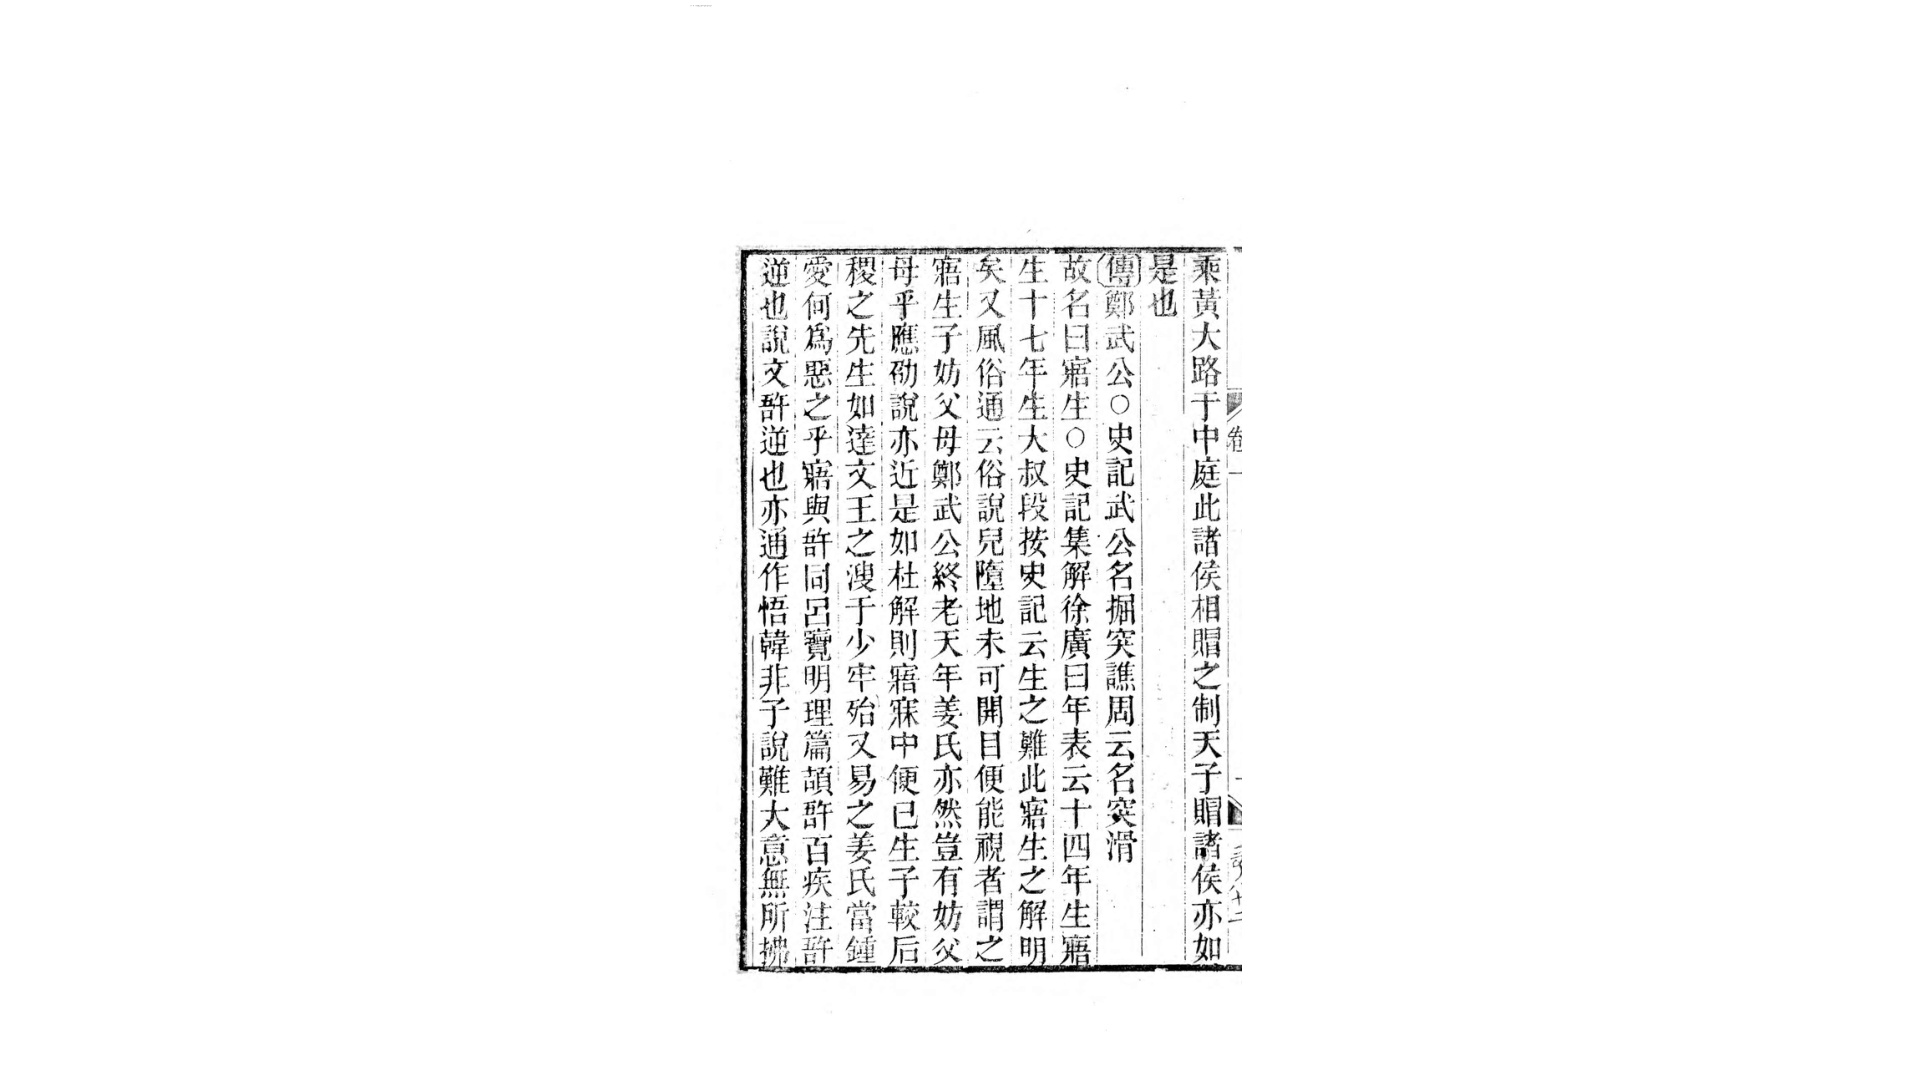 乘黃大路于中庭此諸侯相賵之制天子賵諸侯亦如
是也
傳鄭武公○史記武公名掘突譙周云名突滑
故名曰寤生○史記集解徐廣曰年表云十四年生寤
生十七年生大叔段按史記云生之難此寤生之解明
矣又風俗通云俗說兒墮地未可開目便能視者謂之
寤生子妨父母鄭武公終老天年姜氏亦然豈有妨父
母乎應劭說亦近是如杜解則寤寐中便已生子較后
稷之先生如達文王之溲于少牢殆又易之姜氏當鍾
愛何爲惡之乎寤與䚽同呂覽明理篇頡䚽百疾注䚽
逆也說文䚽逆也亦通作悟韓非子說難大意無所拂
卷一